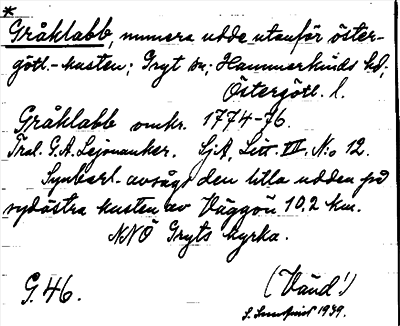 *
Gråklabb, numera udde utanför öster-
götl.-kusten; Gryt sn; Hammarkinds hd;
Östergötl. l.
Gråklabb omkr. 1774-76.
Tral. G.A. Lejonanker. SjA, Litt. III. No 12.
Synbarl. avsågs den lilla udden på
sydöstra kusten av Väggön 10,2 km.
NNÖ Gryts kyrka.
G. 46.
(Vänd!)
1939.